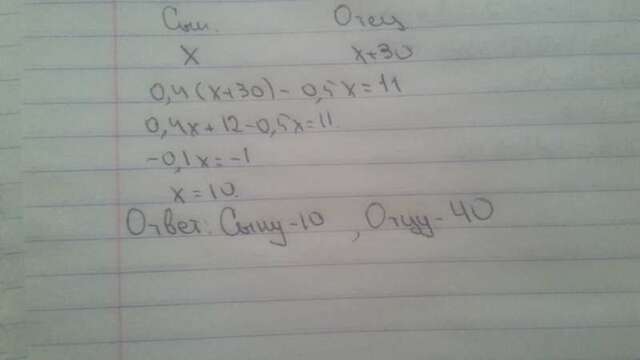 Сын. Отец
x x+30
0,4(x+30) - 0,5x = 11
0,4x + 12 - 0,5x = 11.
-0,1x = -1
x = 10.
Ответ: Сыну - 10 , Отцу - 40